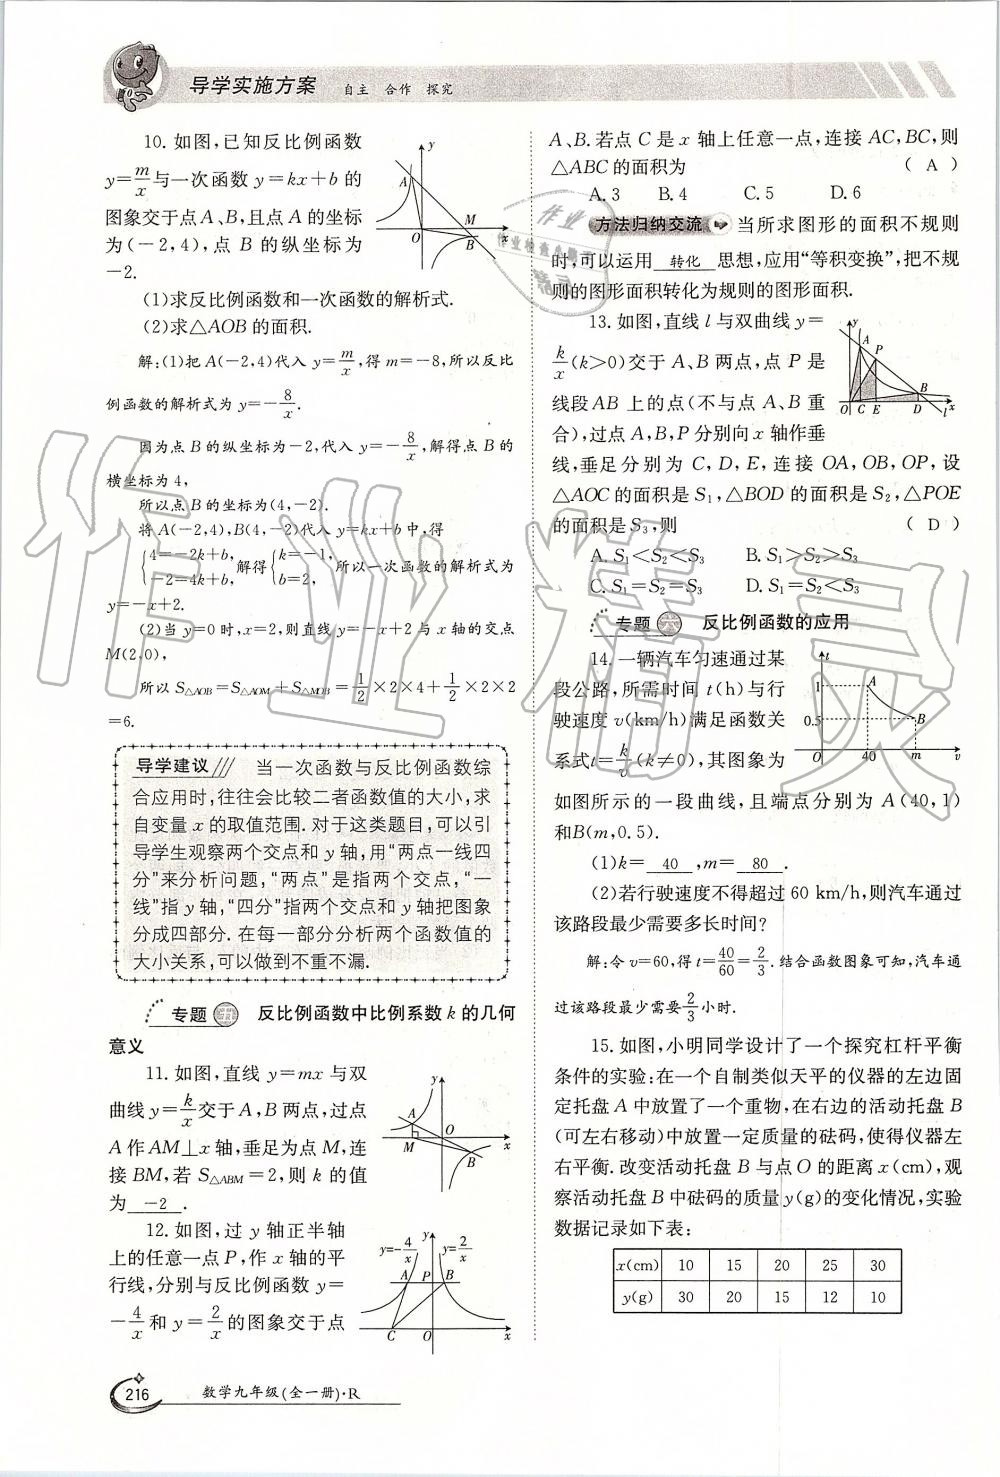 导学实施方案 自主 合作 探究
10. 如图,已知反比例函数
y=m/x与一次函数 y=kx+b 的
图象交于点 A、B,且点 A 的坐标
为(-2,4),点 B 的纵坐标为
-2.
(1)求反比例函数和一次函数的解析式.
(2)求△AOB 的面积.
解:(1)把 A(-2,4)代入 y=m/x,得 m=-8,所以反比
例函数的解析式为 y=-8/x.
因为点 B 的纵坐标为-2,代入 y=-8/x,解得点 B 的
横坐标为 4,
所以点 B 的坐标为(4,-2).
将 A(-2,4),B(4,-2)代入 y=kx+b 中,得
{4=-2k+b, -2=4k+b, 解得{k=-1, b=2, 所以一次函数的解析式为
y=-x+2.
(2)当 y=0 时,x=2,则直线 y=-x+2 与 x 轴的交点
M(2,0),
所以 S△AOB=S△AOM+S△MOB=1/2×2×4+1/2×2×2
=6.
导学建议 当一次函数与反比例函数综
合应用时,往往会比较二者函数值的大小,求
自变量 x 的取值范围. 对于这类题目,可以引
导学生观察两个交点和 y 轴,用“两点一线四
分”来分析问题,“两点”是指两个交点,“一
线”指 y 轴,“四分”指两个交点和 y 轴把图象
分成四部分. 在每一部分分析两个函数值的
大小关系,可以做到不重不漏.
专题 五 反比例函数中比例系数 k 的几何
意义
11. 如图,直线 y=mx 与双
曲线 y=k/x交于 A,B 两点,过点
A 作 AM⊥x 轴,垂足为点 M,连
接 BM,若 S△ABM=2,则 k 的值
为 -2 .
12. 如图,过 y 轴正半轴
上的任意一点 P,作 x 轴的平
行线,分别与反比例函数 y=
-4/x和 y=2/x的图象交于点
y A O M B x
y A M O B x
y=-4/x y y=2/x
A P B
C O x
216 数学九年级(全一册)·R
A、B. 若点 C 是 x 轴上任意一点,连接 AC,BC,则
△ABC 的面积为 ( A )
A. 3 B. 4 C. 5 D. 6
方法归纳交流 当所求图形的面积不规则
时,可以运用 转化 思想,应用“等积变换”,把不规
则的图形面积转化为规则的图形面积.
13. 如图,直线 l 与双曲线 y=
k/x(k>0)交于 A、B 两点,点 P 是
线段 AB 上的点(不与点 A、B 重
合),过点 A,B,P 分别向 x 轴作垂
线,垂足分别为 C,D,E,连接 OA,OB,OP,设
△AOC 的面积是 S₁,△BOD 的面积是 S₂,△POE
的面积是 S₃,则 ( D )
A. S₁<S₂<S₃ B. S₁>S₂>S₃
C. S₁=S₂=S₃ D. S₁=S₂<S₃
y A P B
O C E D l x
专题 六 反比例函数的应用
14. 一辆汽车匀速通过某
段公路,所需时间 t(h)与行
驶速度 v(km/h)满足函数关
系式t=k/v(k≠0),其图象为
如图所示的一段曲线,且端点分别为 A(40,1)
和B(m,0.5).
t
1 A
0.5 B
O 40 m v
(1)k= 40 ,m= 80 .
(2)若行驶速度不得超过 60 km/h,则汽车通过
该路段最少需要多长时间?
解:令 v=60,得 t=40/60=2/3. 结合函数图象可知,汽车通
过该路段最少需要2/3小时.
15. 如图,小明同学设计了一个探究杠杆平衡
条件的实验:在一个自制类似天平的仪器的左边固
定托盘 A 中放置了一个重物,在右边的活动托盘 B
(可左右移动)中放置一定质量的砝码,使得仪器左
右平衡. 改变活动托盘 B 与点 O 的距离 x(cm),观
察活动托盘 B 中砝码的质量 y(g)的变化情况,实验
数据记录如下表:
x(cm) 10 15 20 25 30
y(g) 30 20 15 12 10
作业精灵